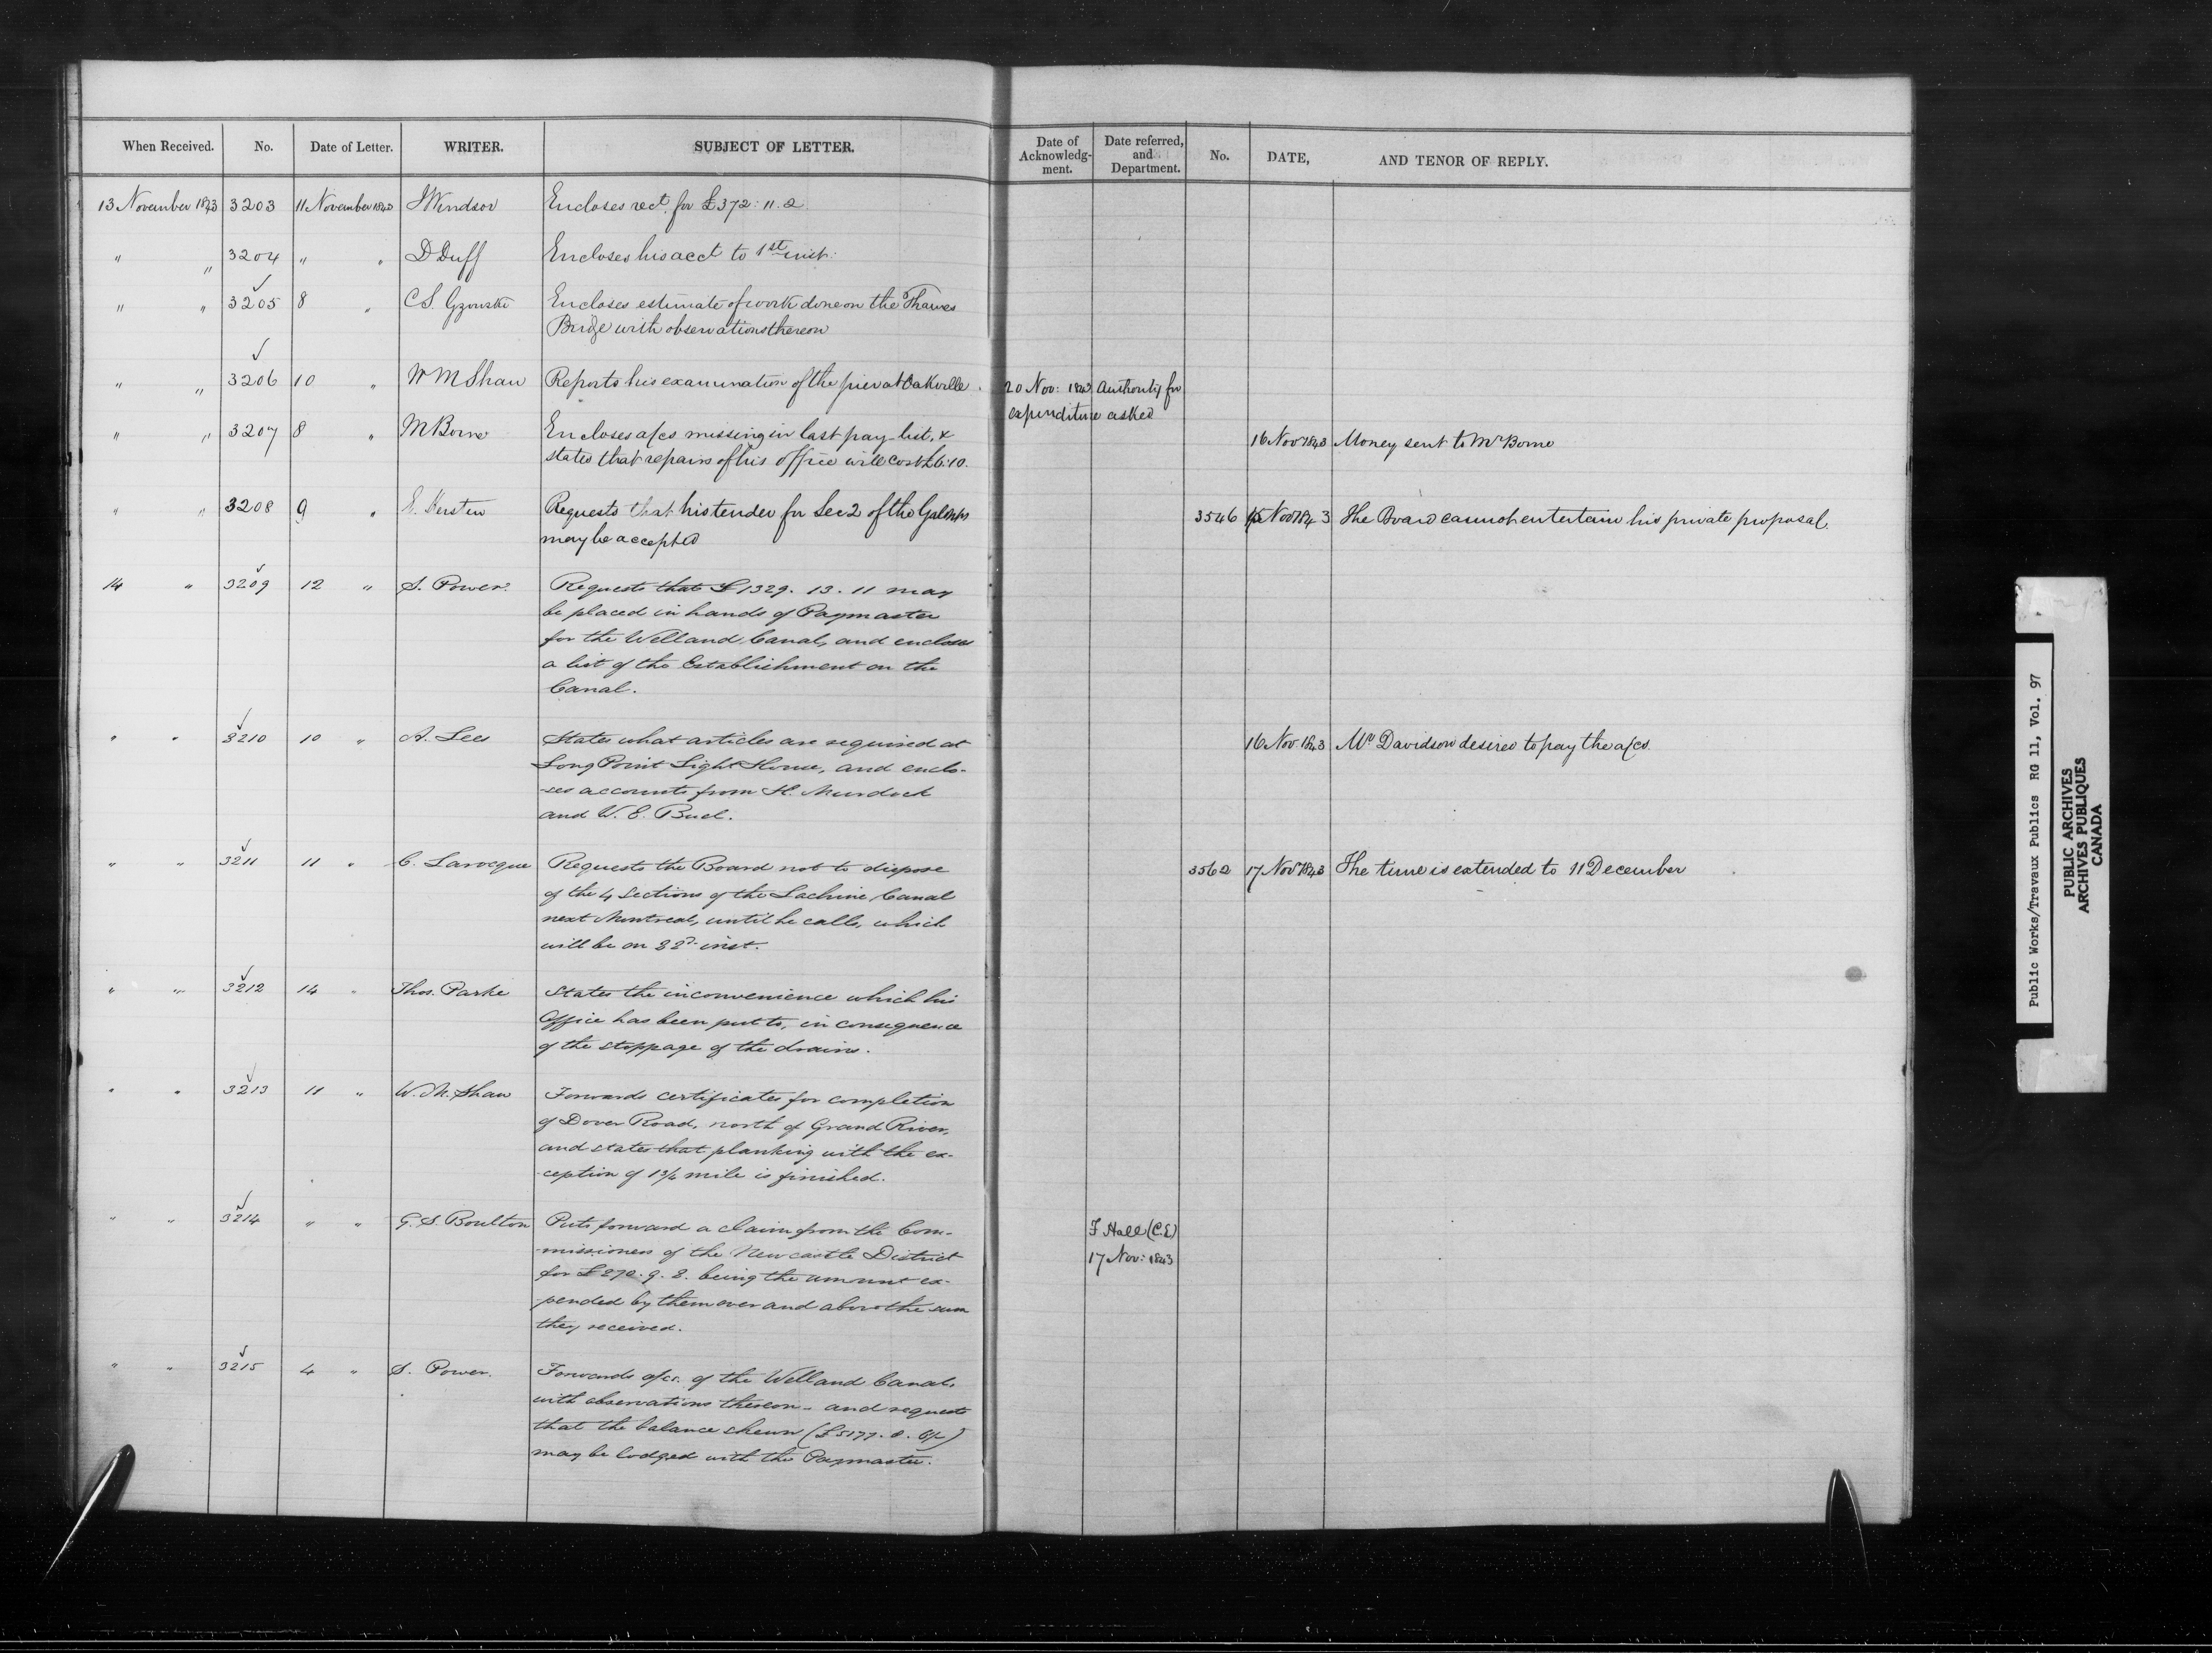 When Received. No. Date of Letter. WRITER. SUBJECT OF LETTER. Date of Acknowledg-ment. Date referred, and Department. No. DATE, AND TENOR OF REPLY.
13 November 1843 3203 11 November 1843 J Windsor Encloses rect. for £372: 11. 2.
" " 3204 " " D Duff Encloses his acct to 1st inst:
" " 3205 8 " C S. Gzowski Encloses estimate of work done on the Thames
Bridge with observations thereon
" " 3206 10 " W M Shaw Reports his examination of the pier at Oakville. 20 Nov: 1843 Authority for
expenditure asked
" " 3207 8 " M Borne Encloses a/cs missing in last pay list, &
states that repairs of his office will cost £6:10. 16 Nov 1843 Money sent to Mr Borne
" " 3208 9 " Requests that his tender for Sec 2 of the
may be accepted 3546 15 Nov 1843 The Board cannot entertain his private proposal.
14 " 3209 12 " S. Power. Requests that £1329. 13. 11 may
be placed in hands of Paymaster
for the Welland Canal, and encloses
a list of the Establishment on the
Canal.
" " 3210 10 " A. Lees States what articles are required at
Long Point Light House, and enclo-
ses accounts from H. Murdoch
and W. E. Buel. 16 Nov 1843 Mr Davidson desired to pay the a/cs.
" " 3211 11 " C. Larocque Requests the Board not to dispose
of the 4 Sections of the Lachine Canal
next Montreal, until he calls, which
will be on 22d inst. 3562 17 Nov 1843 The time is extended to 11 December
" " 3212 14 " Thos. Parke States the inconvenience which his
Office has been put to, in consequence
of the stoppage of the drains.
" " 3213 11 " W. M. Shaw Forwards certificates for completion
of Dover Road, north of Grand River,
and states that planking with the ex-
ception of 1¾ mile is finished.
" " 3214 " " G. S. Boulton Puts forward a claim from the Com-
missioners of the Newcastle District
for £272. 9. 8. being the amount ex-
pended by them over and above the sum
they received. F Hall (C.E)
17 Nov: 1843
" " 3215 4 " S. Power. Forwards a/cs. of the Welland Canal,
with observations thereon - and requests
that the balance shewn (£5177. 0. 6½)
may be lodged with the Paymaster.
Public Works/Travaux Publics RG 11, Vol. 97
PUBLIC ARCHIVES
ARCHIVES PUBLIQUES
CANADA